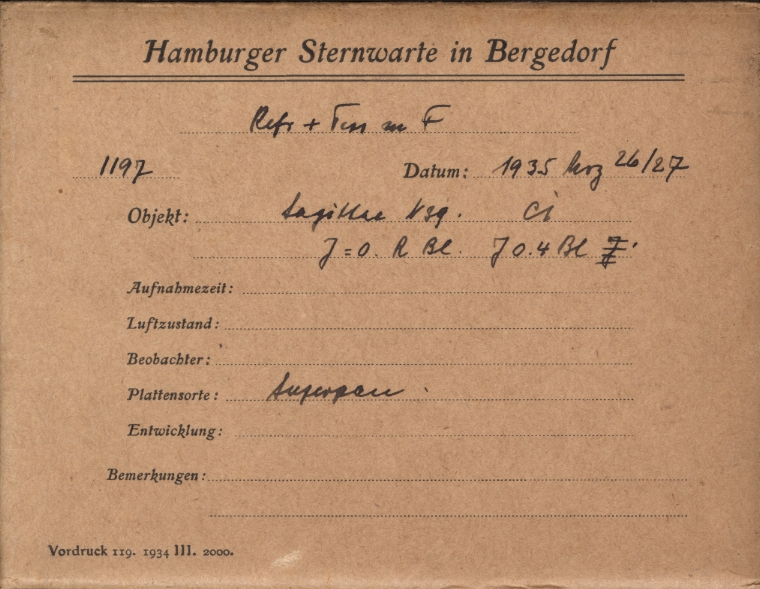 Hamburger Sternwarte in Bergedorf
Refr + Tess F
1197 Datum: 1935 26/27
Objekt: Sagittae Ci
J = 0. R Bl. J 0.4 Bl
Aufnahmezeit:
Luftzustand:
Beobachter:
Plattensorte: Superpan
Entwicklung:
Bemerkungen:
Vordruck 119. 1934 III. 2000.